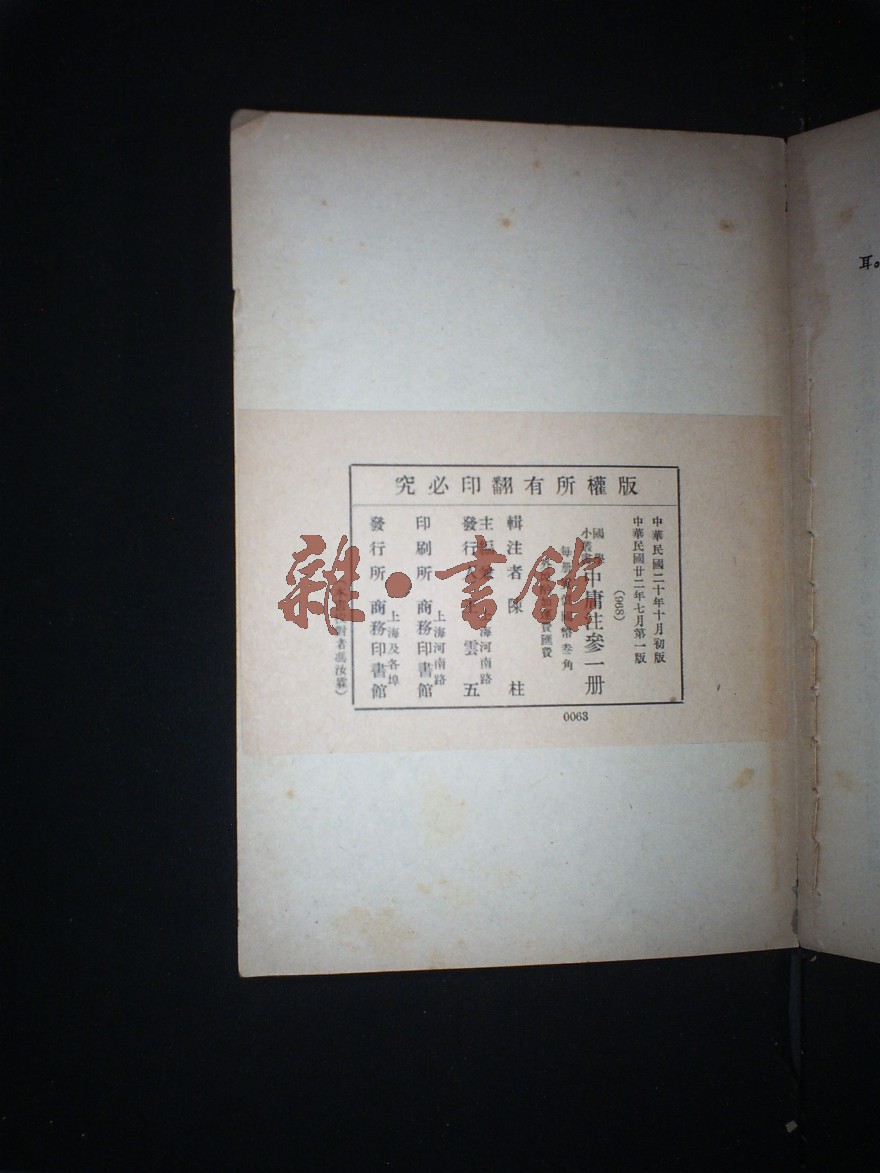 版權所有翻印必究
中華民國二十年十月初版
中華民國廿二年七月第一版
(968)
國學
小叢書
中庸注參一册
每册
國幣叁角
費匯費
輯注者 陳柱
主編
發行人 王雲五
上海河南路
印刷所 商務印書館
上海河南路
發行所 商務印書館
上海及各埠
對者馮汝霖)
0063
耳。
雜·書館